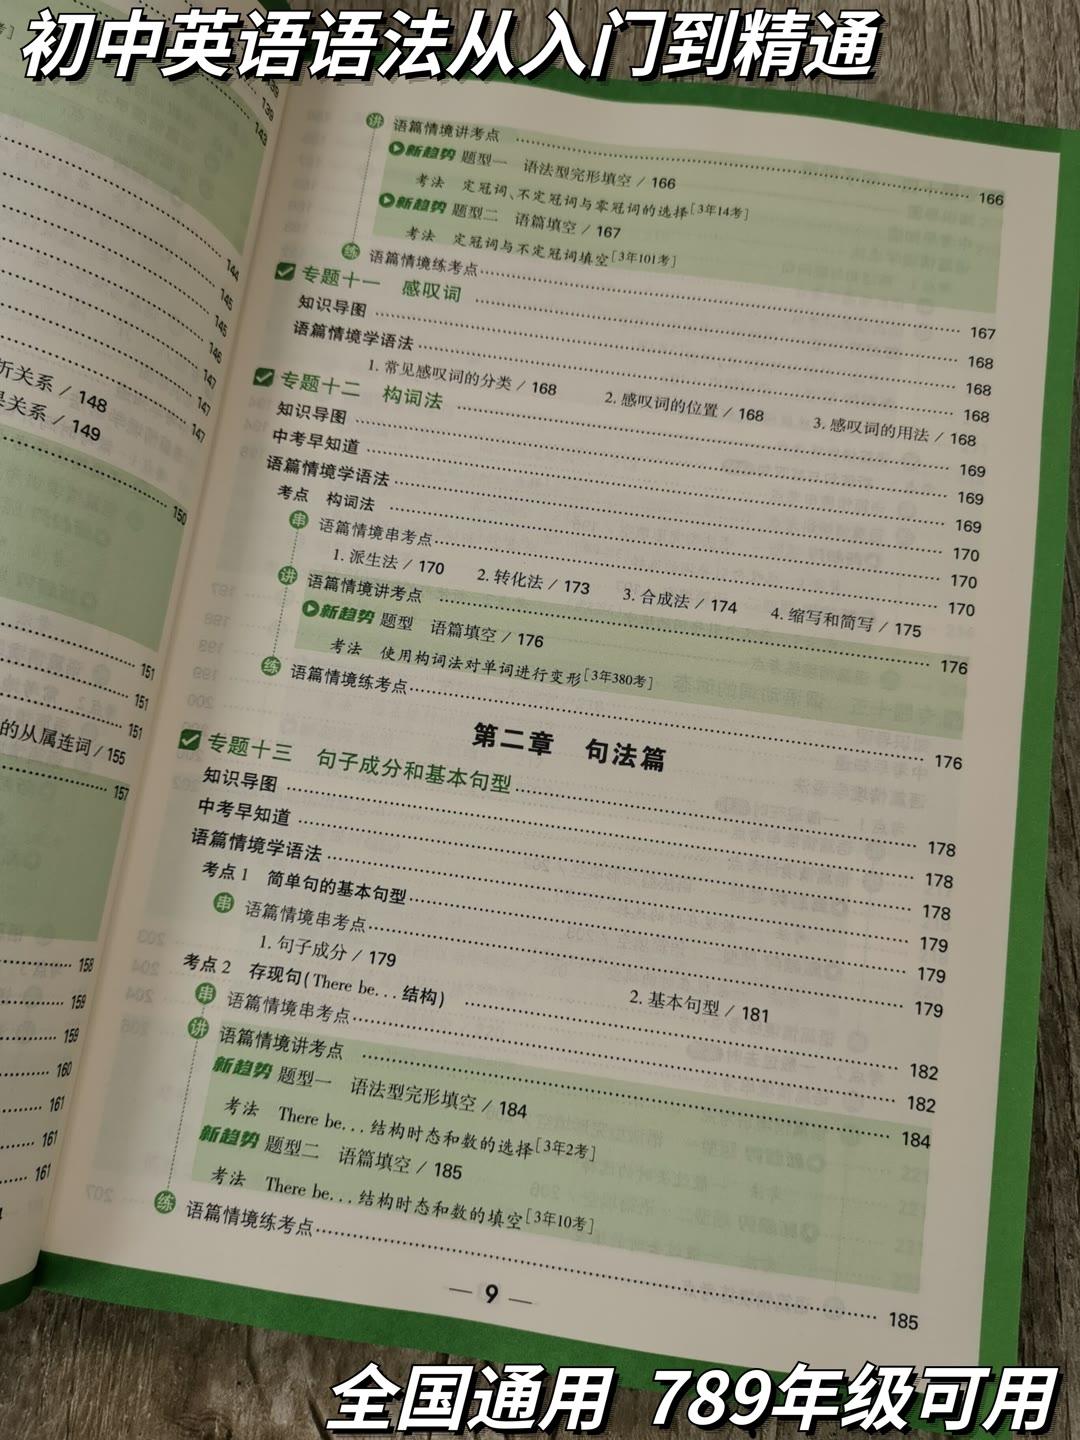 初中英语语法从入门到精通
139
139
143
144
145
145
146
147
147
析关系 / 148
147
果关系 / 149
150
151
151
151
的从属连词 / 155
157
158
159
159
160
161
161
161
讲 语篇情境讲考点 166
新趋势 题型一 语法型完形填空 / 166
考法 定冠词、不定冠词与零冠词的选择[3年14考]
新趋势 题型二 语篇填空 / 167
考法 定冠词与不定冠词填空[3年101考]
练 语篇情境练考点 167
专题十一 感叹词 168
知识导图 168
语篇情境学语法 168
1. 常见感叹词的分类 / 168 2. 感叹词的位置 / 168 3. 感叹词的用法 / 168
专题十二 构词法 169
知识导图 169
中考早知道 169
语篇情境学语法 170
考点 构词法 170
串 语篇情境串考点 170
1. 派生法 / 170 2. 转化法 / 173 3. 合成法 / 174 4. 缩写和简写 / 175
讲 语篇情境讲考点 176
新趋势 题型 语篇填空 / 176
考法 使用构词法对单词进行变形[3年380考]
练 语篇情境练考点 176
第二章 句法篇
专题十三 句子成分和基本句型 178
知识导图 178
中考早知道 178
语篇情境学语法 179
考点1 简单句的基本句型 179
串 语篇情境串考点 179
1. 句子成分 / 179 2. 基本句型 / 181
考点2 存现句(There be...结构) 182
串 语篇情境串考点 182
讲 语篇情境讲考点 184
新趋势 题型一 语法型完形填空 / 184
考法 There be...结构时态和数的选择[3年2考]
新趋势 题型二 语篇填空 / 185
考法 There be...结构时态和数的填空[3年10考]
练 语篇情境练考点 185
— 9 —
全国通用 789年级可用